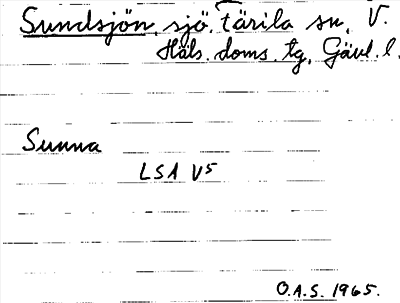 Sundsjön, sjö. Färila sn, V.
Häls. doms. tg, Gävl. l.
Sunna
LSA V5
O.A.S. 1965.